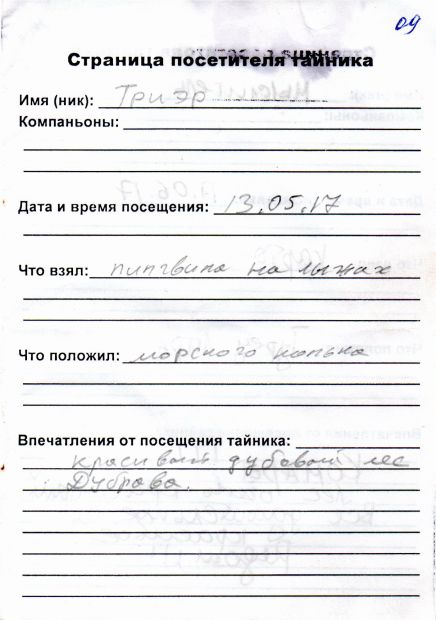 09
Страница посетителя тайника
Имя (ник): Триэр
Компаньоны:
Дата и время посещения: 13.05.17
Что взял: пингвина на лыжах
Что положил: морского конька
Впечатления от посещения тайника:
красивый дубовый лес
Дубрава.